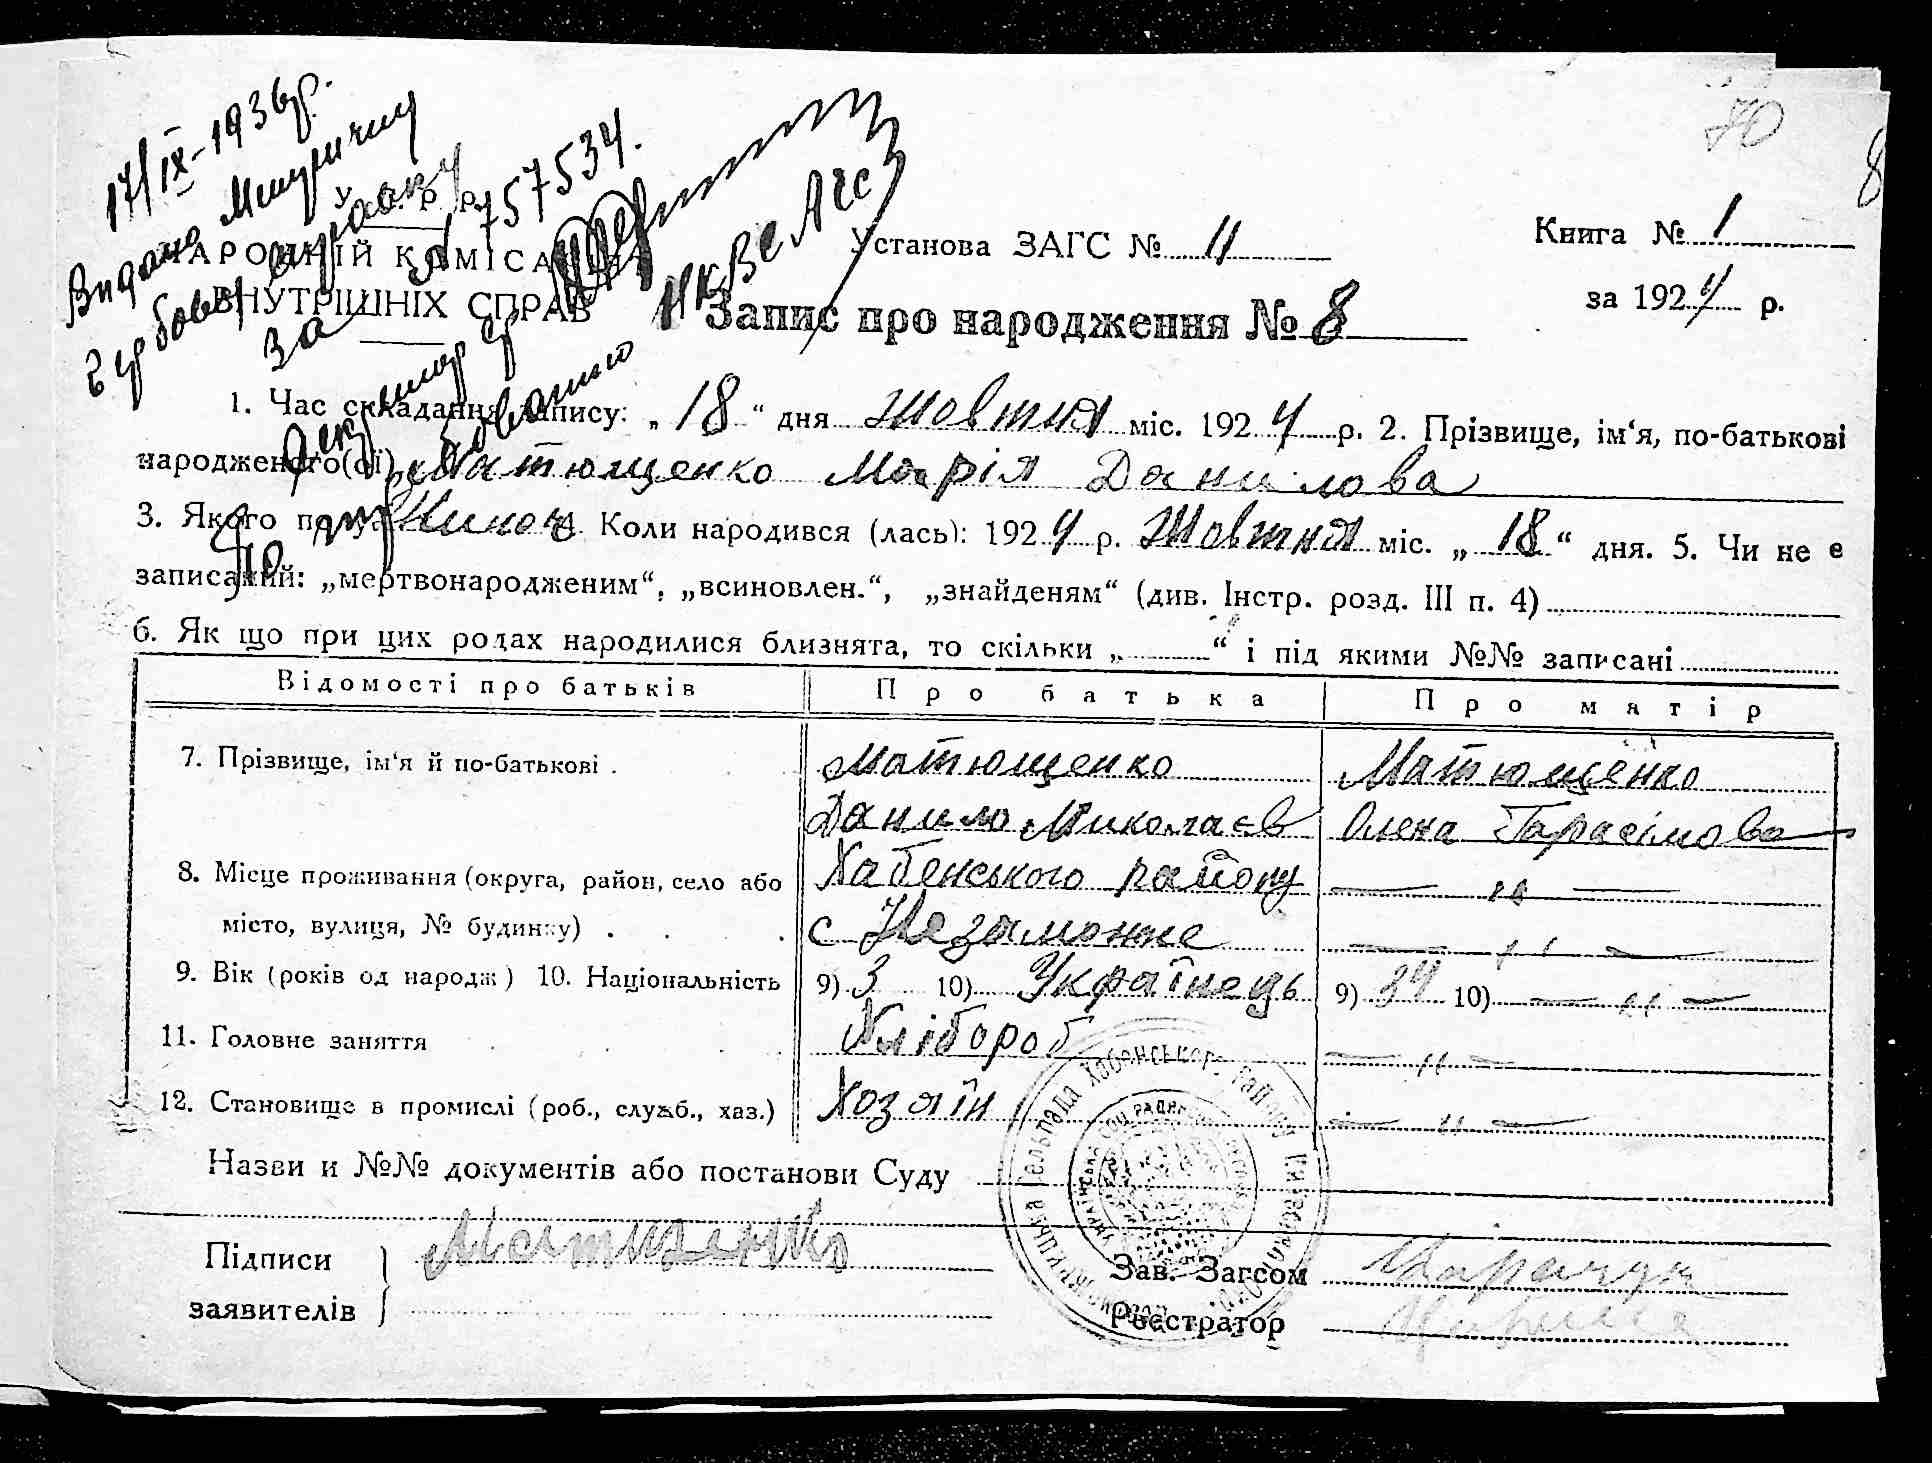 70
8
17/IX-1936р.
Видано
У. С. Р. Р.
НАРОДНІЙ КОМІСАРІЯТ
ВНУТРІШНІХ СПРАВ
за № 757534.
Установа ЗАГС № 11
Книга № 1
за 1924 р.
Запис про народження № 8
1. Час складання запису: „18“ дня Жовтня міс. 1924 р. 2. Прізвище, ім‘я, по-батькові
народженого(ої) Матющенко Марія Данилова
3. Якого полу Жиноч. Коли народився (лась): 1924 р. Жовтня міс. „18“ дня. 5. Чи не є
записаний: „мертвонародженим“, „всиновлен.“, „знайденям“ (див. Інстр. розд. III п. 4)
6. Як що при цих родах народилися близнята, то скільки „ “ і під якими №№ записані
Відомості про батьків Про батька Про матір
7. Прізвище, ім‘я й по-батькові . Матющенко Матющенко
Данило Миколаєв Олена Гарасімова
8. Місце проживання (округа, район, село або Хабенського району — „ —
місто, вулиця, № будинку) . . . с Незаможне — „ —
9. Вік (років од народж) 10. Національність 9) 3 10) Українець 9) 34 10) — „ —
11. Головне заняття . . . Хлібороб — „ —
12. Становище в промислі (роб., служб., хаз.) Хозяїн — „ —
Назви и №№ документів або постанови Суду
Підписи
заявителів
Матющенко
Зав. Загсом
Реєстратор